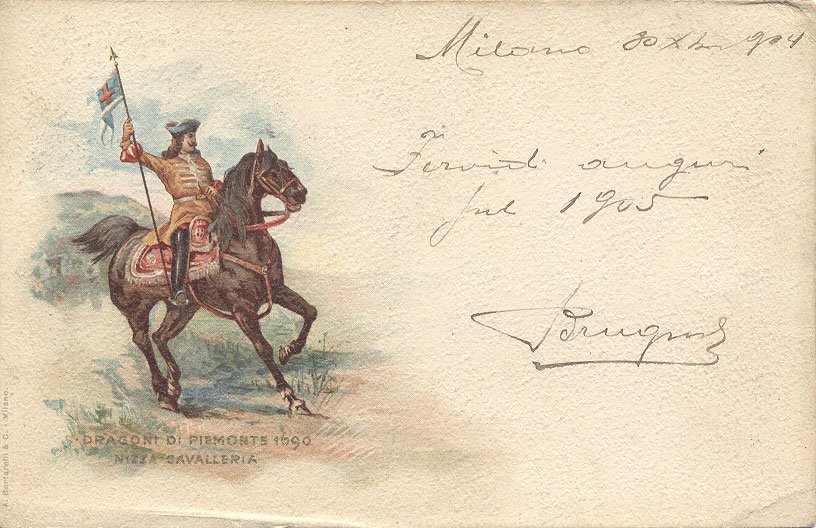 Milano 30 XII 904
Fervidi auguri
pel 1905
DRAGONI DI PIEMONTE 1690
NIZZA CAVALLERIA
A. Bertarelli & C. - Milano